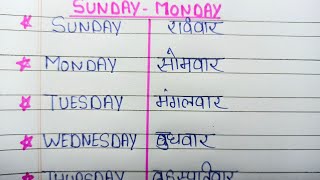 SUNDAY-MONDAY
SUNDAY रविवार
MONDAY सोमवार
TUESDAY मंगलवार
WEDNESDAY बुधवार
THURSDAY